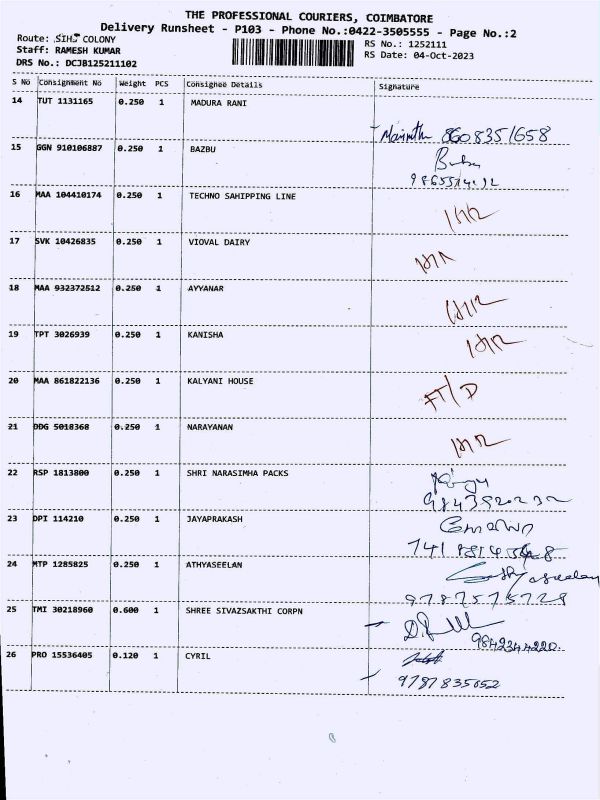 THE PROFESSIONAL COURIERS, COIMBATORE
Delivery Runsheet - P103 - Phone No.:0422-3505555 - Page No.:2
Route: SIHS COLONY
RS No.: 1252111
Staff: RAMESH KUMAR
RS Date: 04-Oct-2023
DRS No.: DCJB125211102
S No Consignment No Weight PCS Consignee Details Signature
14 TUT 1131165 0.250 1 MADURA RANI
8608351658
15 GGN 910106887 0.250 1 BAZBU
16 MAA 104410174 0.250 1 TECHNO SAHIPPING LINE
17 SVK 10426835 0.250 1 VIOVAL DAIRY
18 MAA 932372512 0.250 1 AYYANAR
19 TPT 3026939 0.250 1 KANISHA
20 MAA 861822136 0.250 1 KALYANI HOUSE
21 DDG 5018368 0.250 1 NARAYANAN
22 RSP 1813800 0.250 1 SHRI NARASIMHA PACKS
9843920232
23 DPI 114210 0.250 1 JAYAPRAKASH
24 MTP 1285825 0.250 1 ATHYASEELAN
9787575729
25 TMI 30218960 0.600 1 SHREE SIVAZSAKTHI CORPN
9842344220.
26 PRO 15536405 0.120 1 CYRIL
9787835052